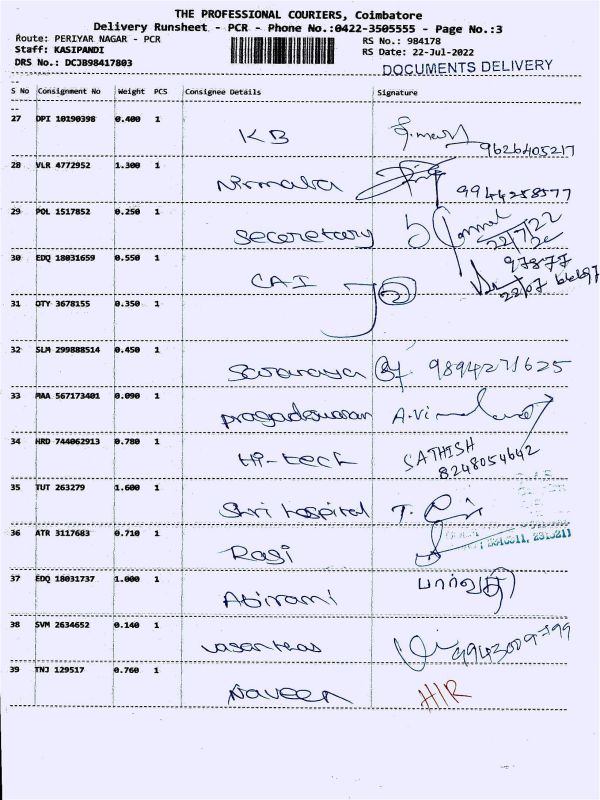 THE PROFESSIONAL COURIERS, Coimbatore
Delivery Runsheet - PCR - Phone No.:0422-3505555 - Page No.:3
Route: PERIYAR NAGAR - PCR
RS No.: 984178
Staff: KASIPANDI
RS Date: 22-Jul-2022
DRS No.: DCJB98417803
DOCUMENTS DELIVERY
S No Consignment No Weight PCS Consignee Details Signature
27 DPI 10190398 0.400 1
KB
9626405217
28 VLR 4772952 1.300 1
Nirmala 9944258577
29 POL 1517852 0.250 1
Secoretory
22/7/22
30 EDQ 18031659 0.550 1
CAI
97877
22/07
31 OTY 3678155 0.350 1
32 SLM 299888514 0.450 1
9894271625
33 MAA 567173401 0.090 1
34 HRD 744062913 0.780 1
Hi-tech SATHISH
8248054642
35 TUT 263279 1.600 1
Shri hospital
36 ATR 3117683 0.710 1
Ragi
37 EDQ 18031737 1.000 1
Abirami பார்வதி
38 SVM 2634652 0.140 1
Vasanthas 9943009799
39 TNJ 129517 0.760 1
Naveen H/R